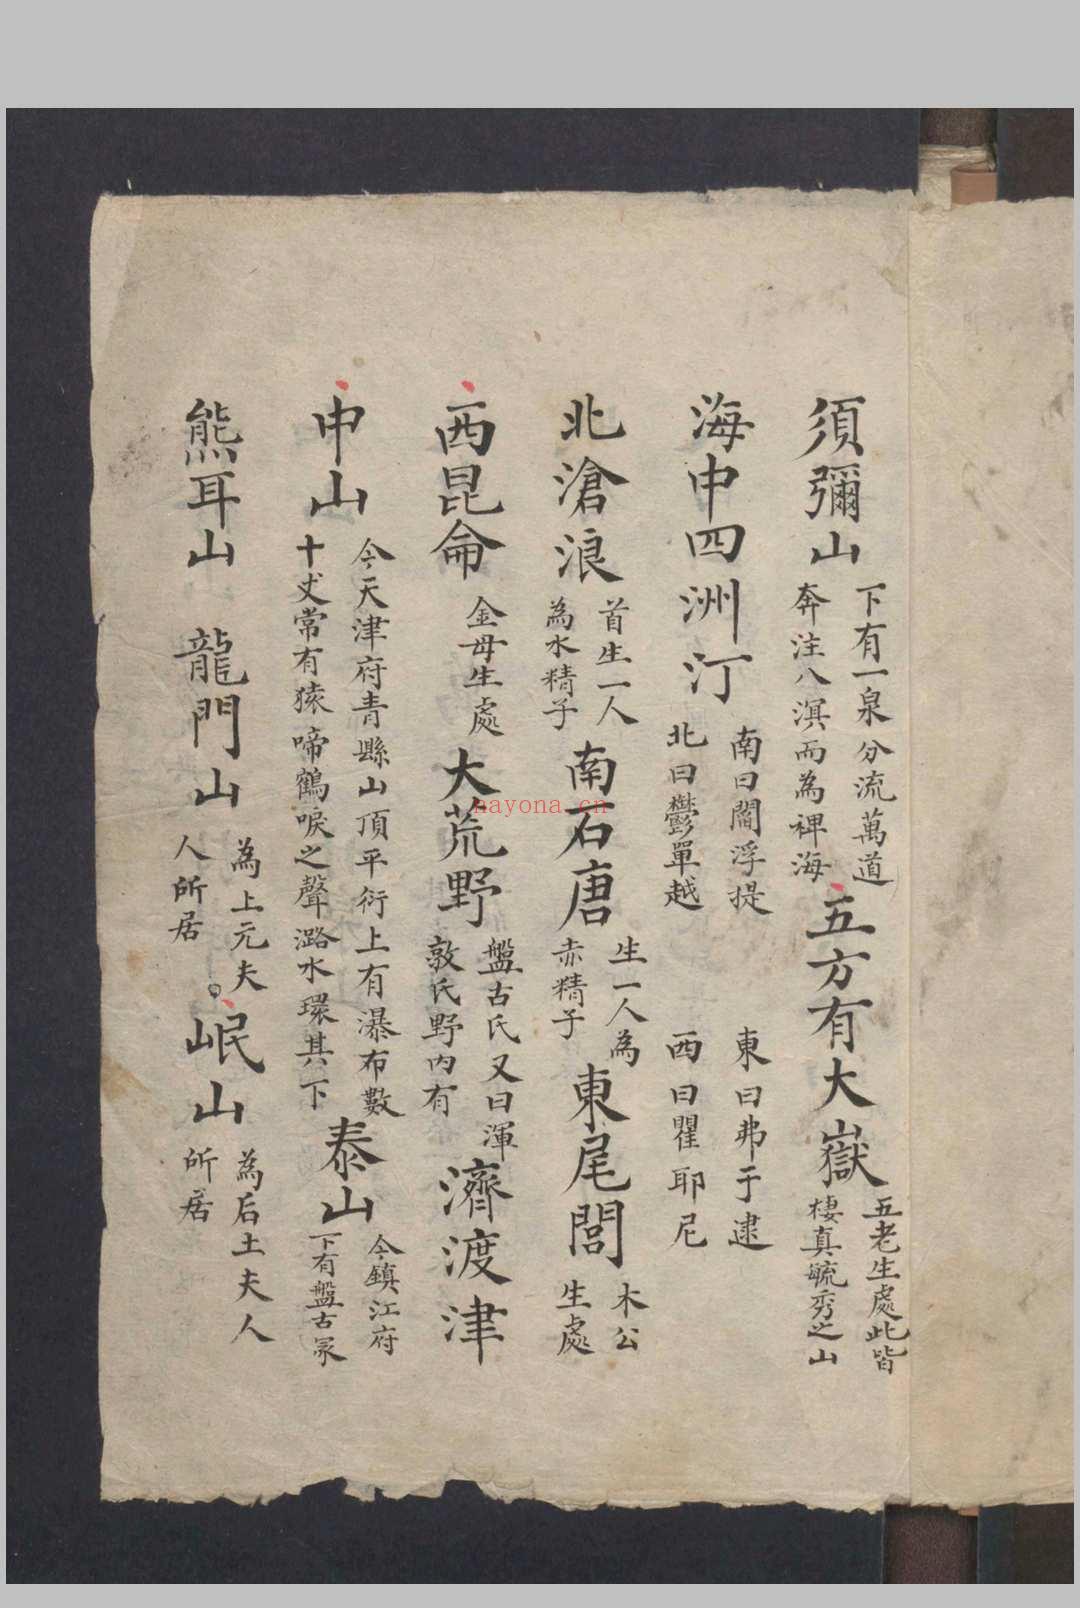 須彌山 下有一泉分流萬道奔注八溟而為裨海 五方有大嶽 五老生處此皆棲真毓秀之山
海中四洲汀 南曰閻浮提 北曰鬱單越 東曰弗于逮 西曰瞿耶尼
北滄浪 首生一人為水精子 南石唐 生一人為赤精子 東尾閭 木公生處
西昆侖 金母生處 大荒野 盤古氏又曰渾敦氏野內有 濟渡津
中山 今天津府青縣山頂平衍上有瀑布數十丈常有猿啼鶴唳之聲潞水環其下 泰山 今鎮江府下有盤古冢
熊耳山 龍門山 為上元夫人所居 岷山 為后土夫人所居
nayona.cn